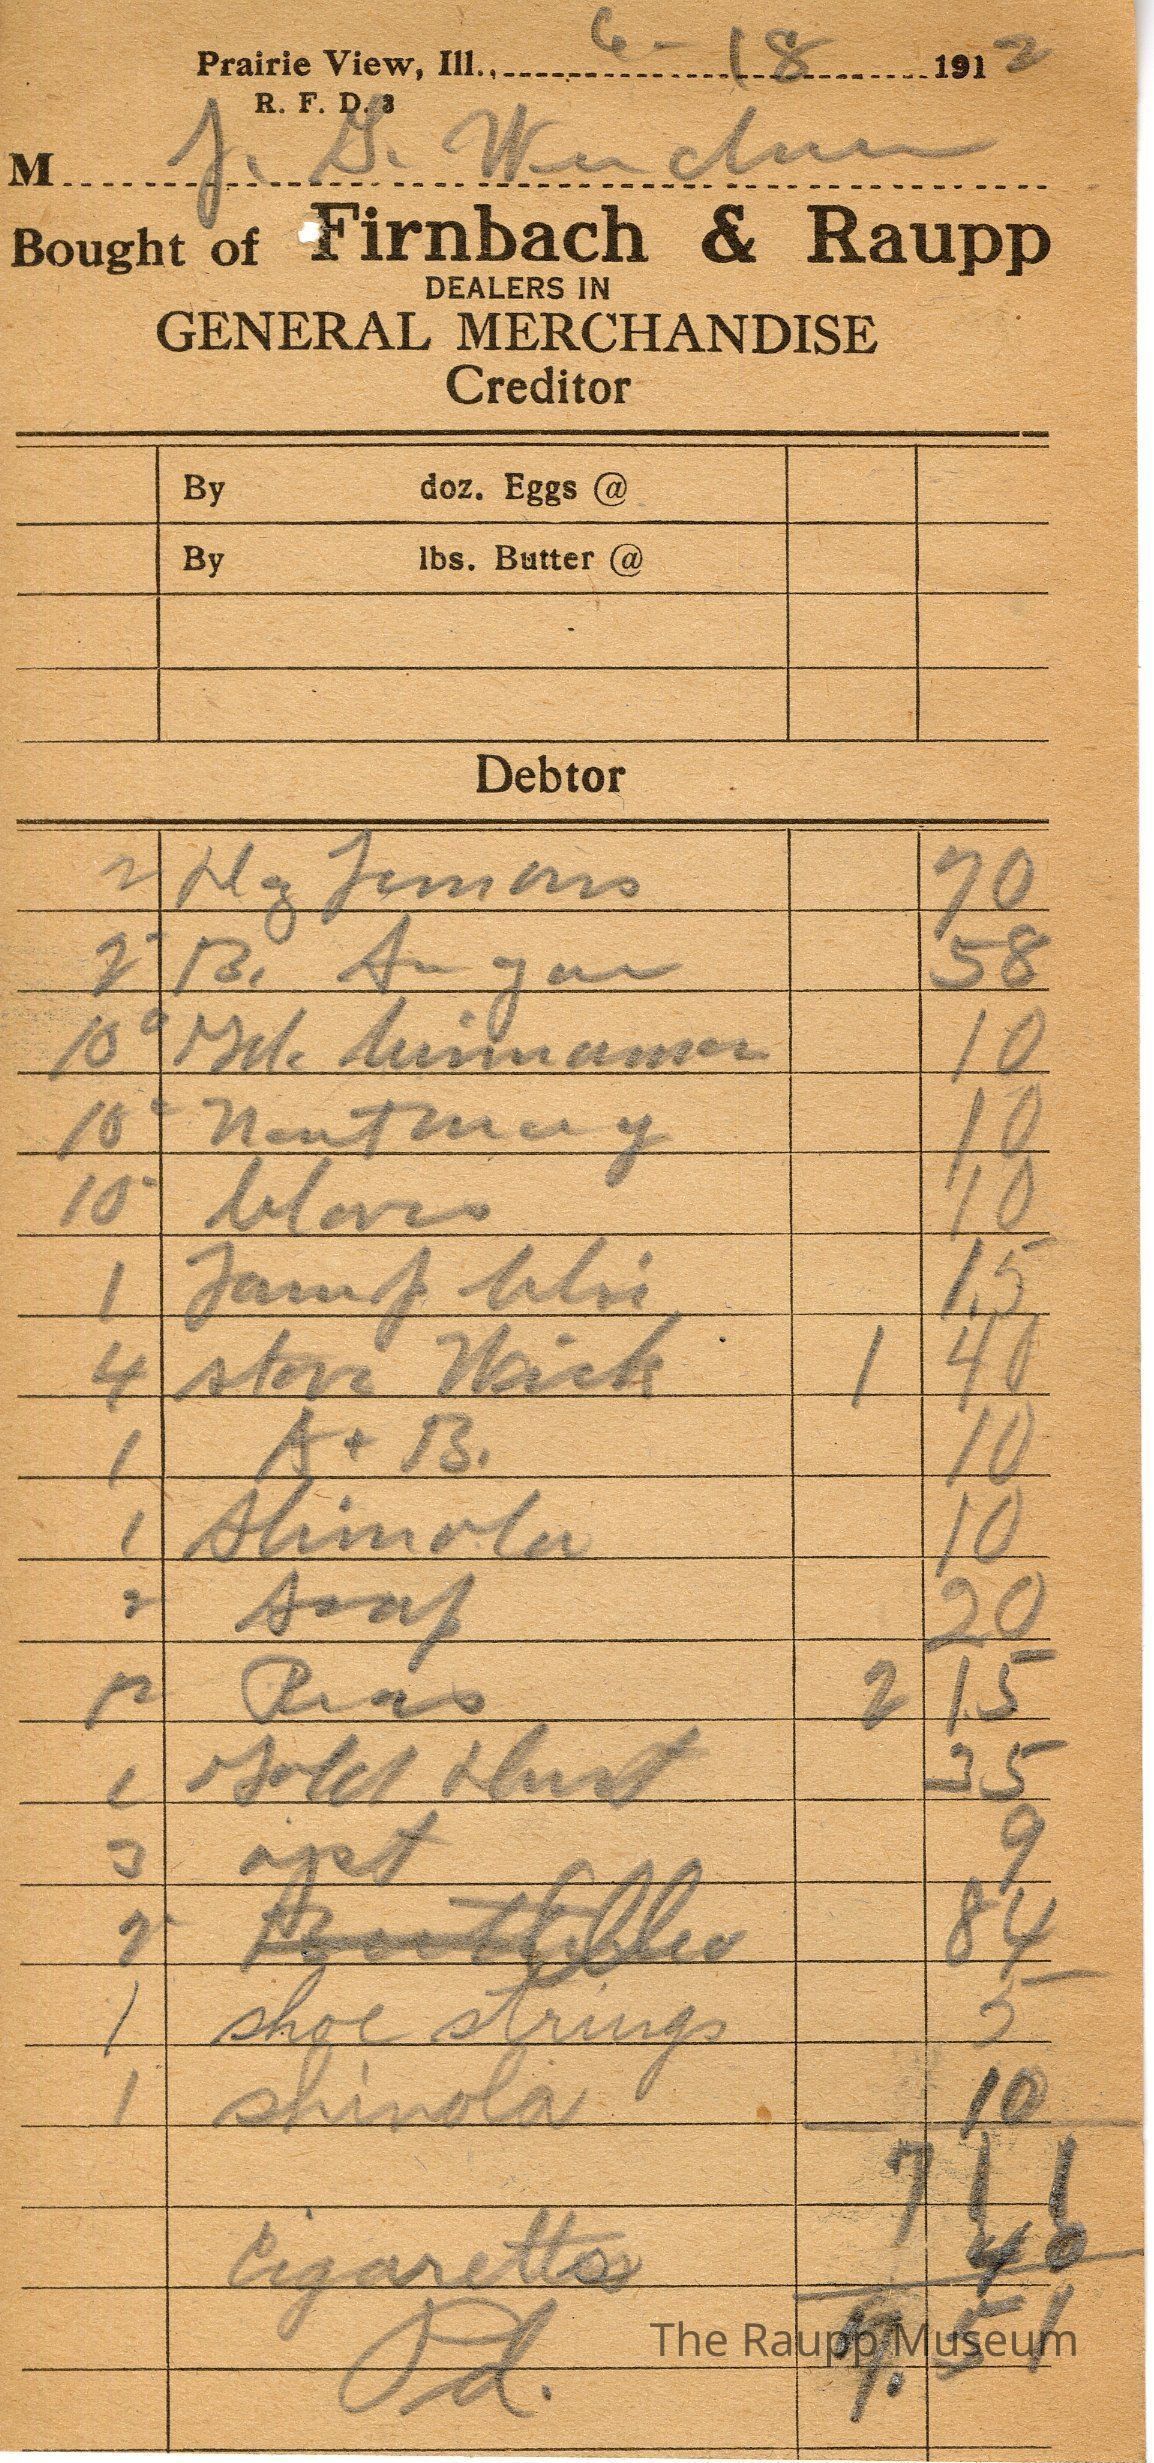 Prairie View, Ill., 6-18 1912
R. F. D. 3
M J. G.
Bought of Firnbach & Raupp
DEALERS IN
GENERAL MERCHANDISE
Creditor
By doz. Eggs @
By lbs. Butter @
Debtor
2 Dz Lemons 70
2 B. Sugar 58
10 Gd. Cinnamon 10
10 10
10 Cloves 10
1 Lamp 15
4 stove Wick 1 40
1 A + B. 10
1 Shinola 10
2 Soap 20
12 Peas 2 15
1 Gold Dust 25
3 9
2 84
1 shoe strings 5
1 shinola 10
7 11
Cigaretts 40
Pd. 7.51
The Raupp Museum